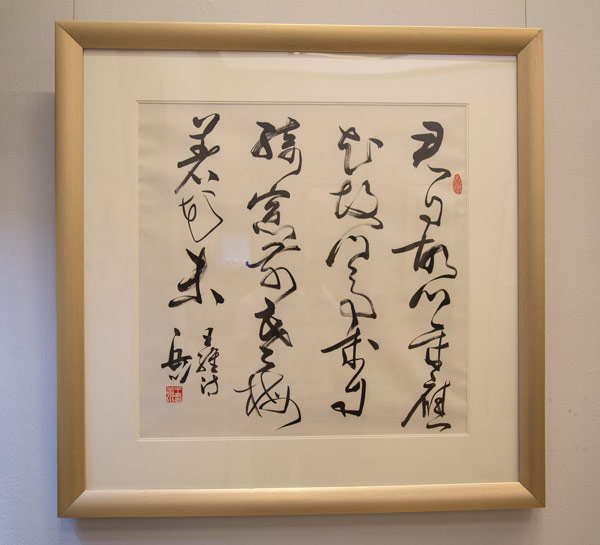 君自故鄉來應
知故鄉事來日
綺窗前寒梅
著花未
王維詩